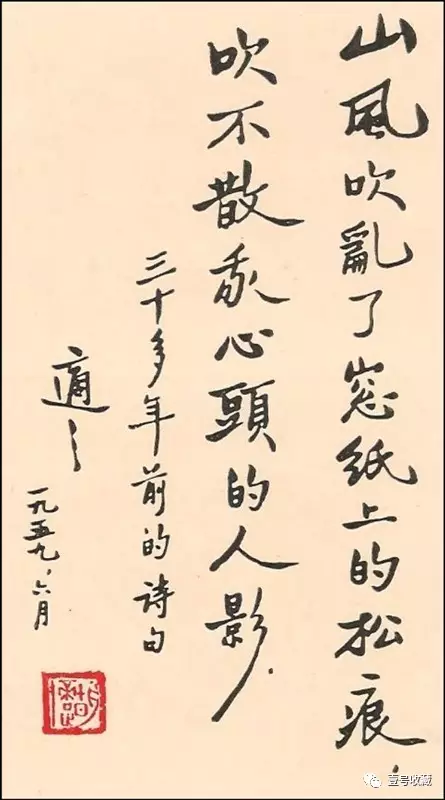 山風吹亂了窓紙上的松痕，
吹不散我心頭的人影．
三十多年前的詩句
適之
一九五九、六月
壹号收藏